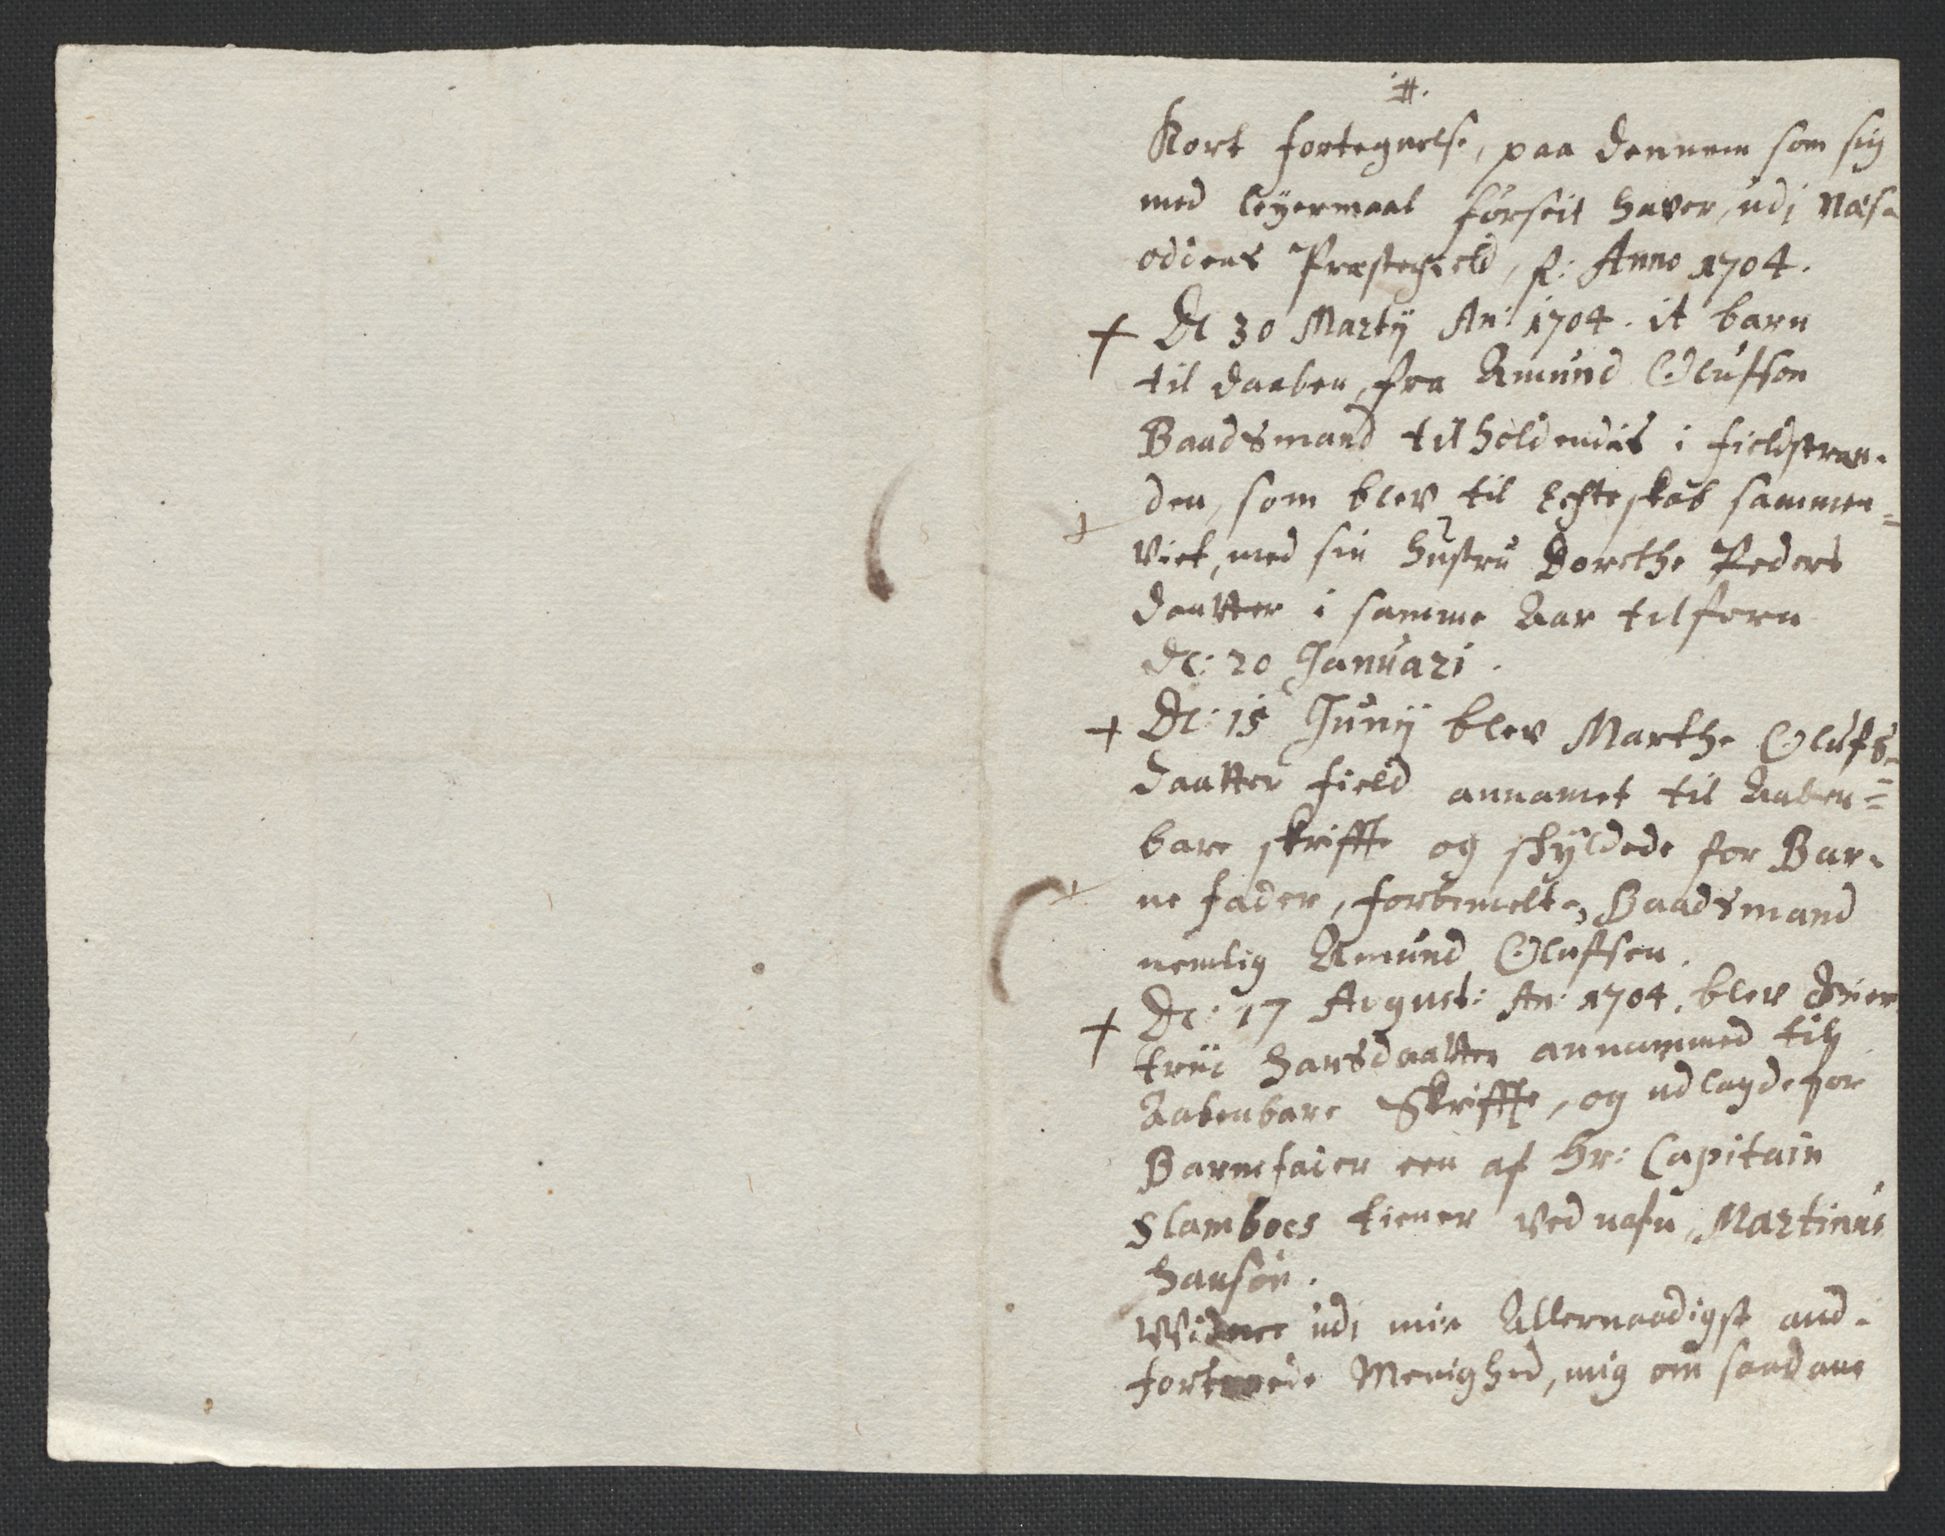 #.
Kort fortegnelse, paa dennem som sig
med leyermaal forseit haver, udj Næs-
oddens Præstegield, p: Anno 1704.
+ Dl 30 Martij An: 1704. it barn
til daaben, fra Amund Olufson
Baadsmand tilholdendis i fieldstran-
den, som blev til Echteskab sammen=
viet, med sin hustru Dorethe Peders
daatter i samme Aar tilforn
Dl: 20 Januari.
+ Dl: 15 Junij blev Marthe Olufs-
daatter field annamet til Aaben=
bare skriffte og skyldede for Bar-
ne fader, forbemelte Baadsmand
nemlig Amund Olufsen.
+ Dl: 17 August: An: 1704. blev
hansdaatter annammed til
Aabenbare Skriffte, og udlagde for
Barnefader een af Hr: Capitain
Slamboes tiener ved nafn, Martinus
hansøn.
udj min Allernaadigst and-
fortroede Menighed, mig om saadane